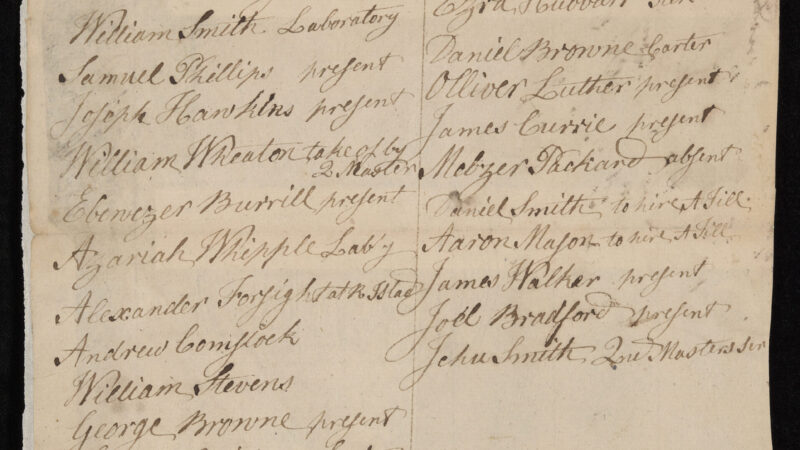 William Smith Laboratory
Samuel Phillips present
Joseph Hawkins present
William Wheaton take of by
2 Master
Ebenezer Burrill present
Azariah Whipple Laby
Alexander Forsight at R Isld
Andrew Comstock
William Stevens
George Browne present
Ezra Hubbart
Daniel Browne Carter
Olliver Luther present
James Currie present
Mebzer Packard absent
Daniel Smith to hire A Fill
Aaron Mason to hire A Fill
James Walker present
Joel Bradford present
Jehu Smith 2nd Masters Ser